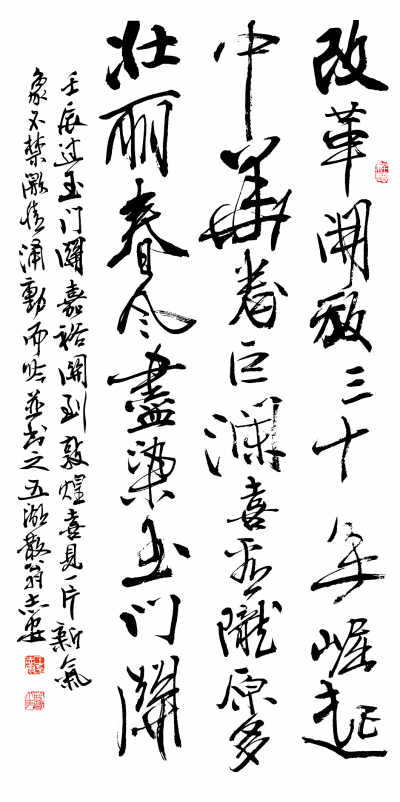 改革開放三十年崛起
中華卷巨瀾喜看隴原多
壮丽春今盡染玉门關
壬辰过玉门關嘉裕關到敦煌喜見一片新氣
象不禁激情涌動而吟並书之五湖散翁志